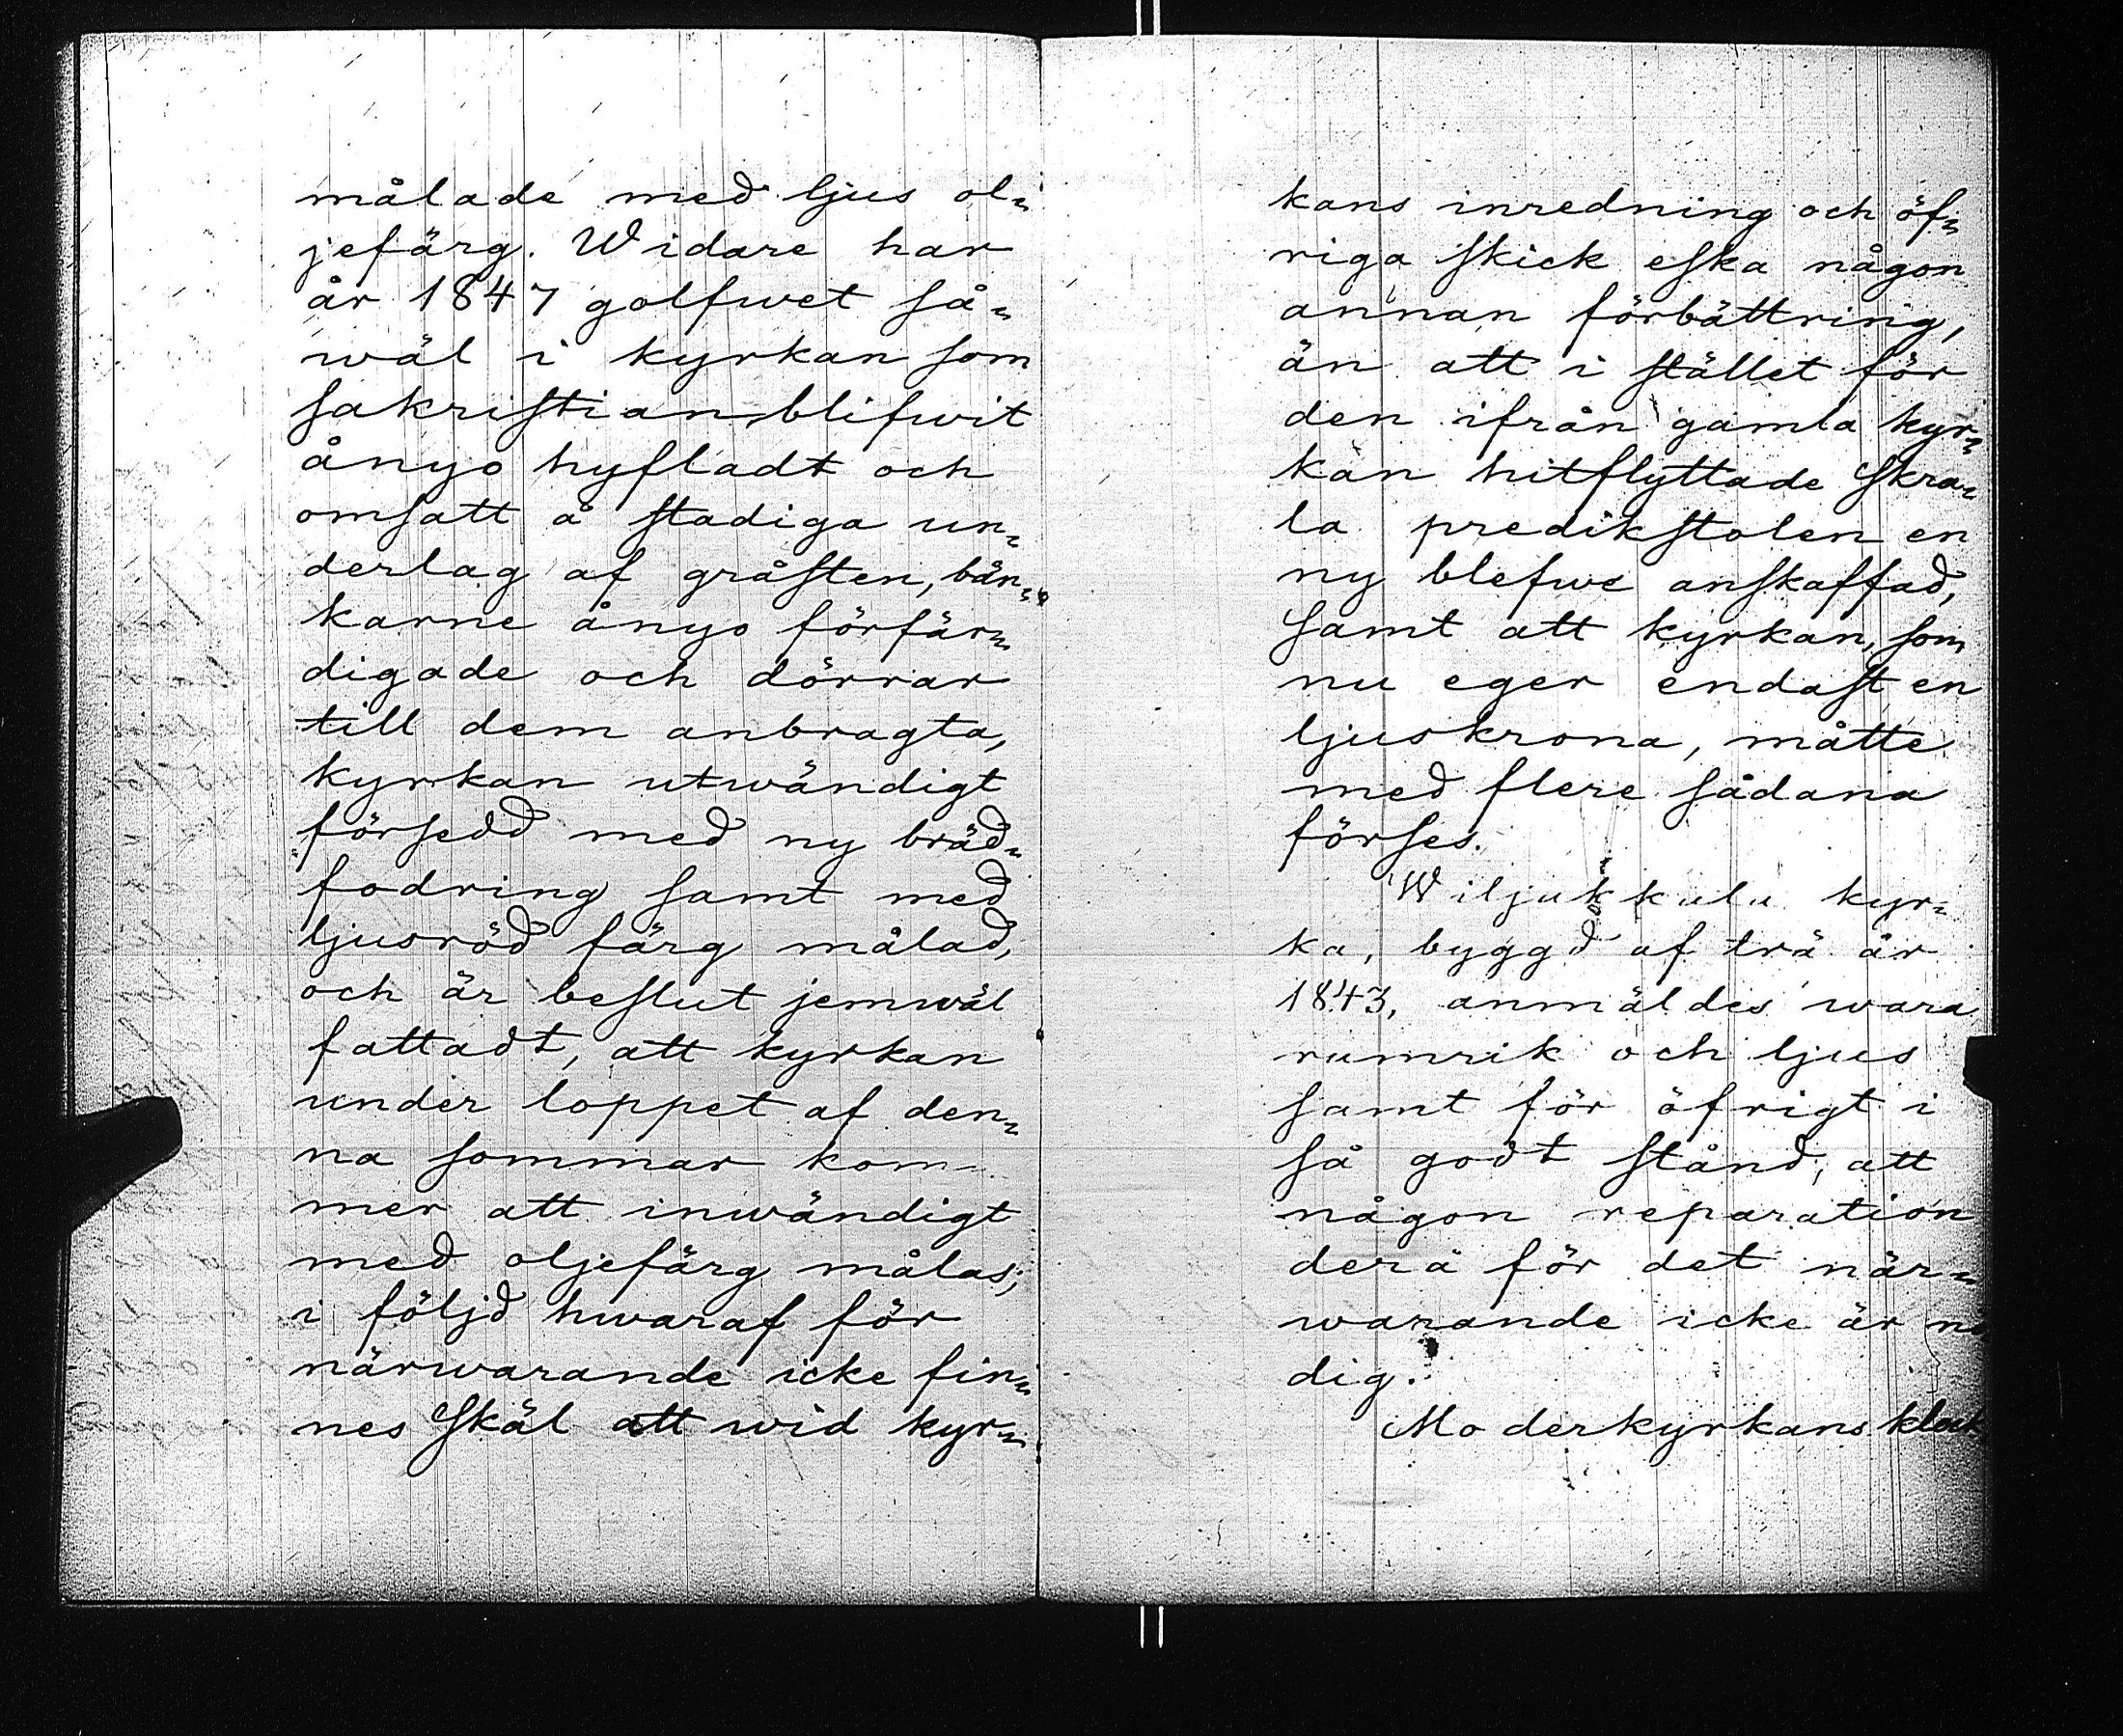 målade med ljus ol=
jefärg. Widare har
år 1847 golfwet så=
wäl i kyrkan som
sakristian blifwit
ånyo hyfladt och
omsatt å stadiga un=
derlag af gråsten, bän=
karne ånyo förfär=
digade och dörrar
till dem anbragta,
kyrkan utwändigt
försedd med ny bräd=
fodring samt med
ljusröd färg målad,
och är beslut jemwäl
fattadt, att kyrkan
under loppet af den=
na sommar kom=
mer att inwändigt
med oljefärg målas;
i följd hwaraf för
närwarande icke fin=
nes skäl att wid kyr=
kans inredning och öf=
riga skick eska någon
annan förbättring,
än att i stället för
den ifrån gamla kyr=
kan hitflyttade skra=
la predikstolen en
ny blefwe anskaffad,
samt att kyrkan, som
nu eger endast en
ljuskrona, måtte
med flere sådana
förses.
Wiljakkala kyr=
ka, byggd af trä år
1843, anmäldes wara
rumrik och ljus
samt för öfrigt i
så godt stånd, att
någon reparation
derå för det när=
warande icke är nö
dig.
Moderkyrkans klock